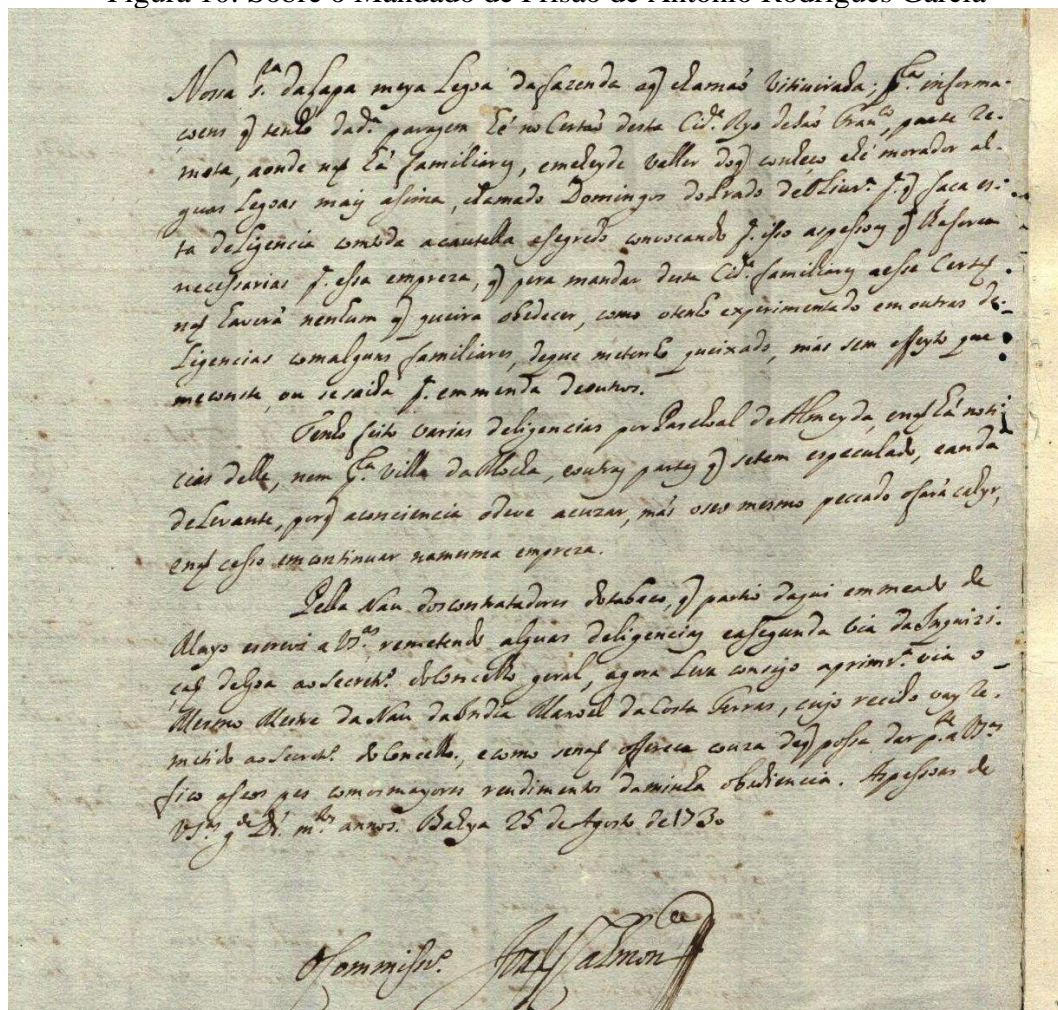 Figura 10: Sobre o Mandado de Prisão de Antônio Rodrigues Garcia
Nossa Sra. da Lapa meya Legoa da fazenda aq chamaõ Vitiuruda; pla. informa-
coens q tenho dada. paragem hé no Certaõ desta Cide. Ryo de saõ Franco, parte Re-
mota, aonde naõ há familiares, emeheyde valler doq conheco ehé morador al-
guas Legoas mais asima, chamado Domingos do Prado de oLiura. pa. q faca es-
ta deLigencia comtoda acautella esegredo convocando pa. isso aspessoas q lheforem
necessarias pa. essa empreza, q pera mandar desta Cide. familiares aesse Certaõ
naõ haverá nenhum q queira obedecer, como otenho experimentado em outras de-
Ligencias comalguns familiares, deque metenho queixado, más sem effeyto que
meconste, ou sesaiba pa. emmenda deoutros.
Tenho feito varias deligencias por Paschoal de Almeyda, enaõ há noti-
cias delle, nem pla. villa da Mocha, eoutras partes q setem especulado, eanda
deLevante, porq aconciencia odeve acuzar, más oseo mesmo peccado ofará cahyr,
enaõ cesso emcontinuar namesma empreza.
Pella Nau doscontratadores dotabaco, q partio daqui emmeado de
Mayo escrevi a VSas. remetendo alguas deligencias easegunda via da Inquizi-
caõ deGoa ao Secretro. do Concelho geral, agora Leva comsigo aprimra. via o
Mesmo Mestre da Nau da India Manoel da Costa Ferras, cujo recibo vay Re-
metido ao Secretro. do Concelho, ecomo senaõ offerece couza deq possa dar pte. a VSas
fico aseos pes comosmayores rendimentos daminha obediencia. Aspessoas de
VSas. gde. Ds. mtos. annos. Bahya 25 de Agosto de 1730
O Commissro. Joaõ Calmon